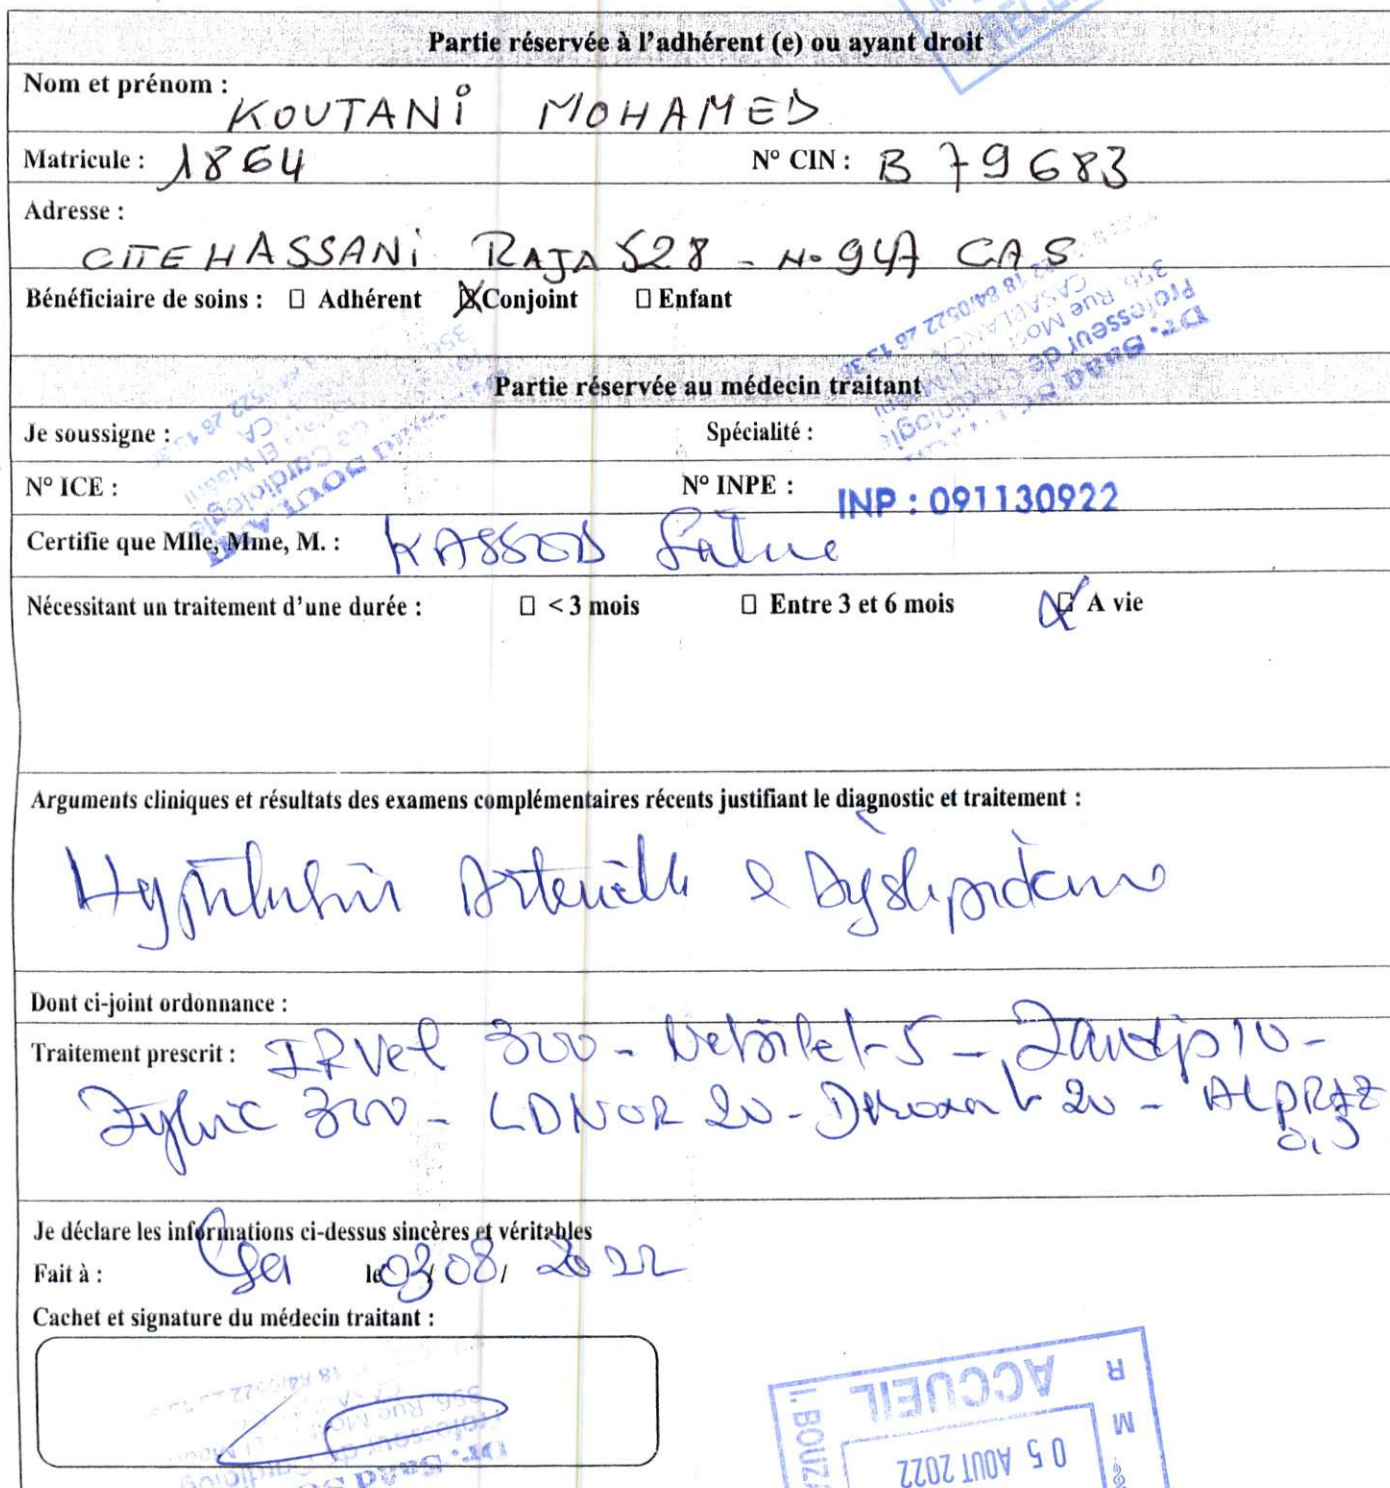 RECE
Partie réservée à l'adhérent (e) ou ayant droit
Nom et prénom : KOUTANI MOHAMED
Matricule : 1864 N° CIN : B 79683
Adresse :
CITE HASSANI RAJA 528 - No 947 CAS
Bénéficiaire de soins : ☐ Adhérent ☒ Conjoint ☐ Enfant
Dr. Saad
Professeur de Cardiologie
356 Rue
CASABLANCA
Partie réservée au médecin traitant
Je soussigne : Spécialité :
N° ICE : N° INPE : INP : 091130922
Certifie que Mlle, Mme, M. : KASSOD
Nécessitant un traitement d'une durée : ☐ < 3 mois ☐ Entre 3 et 6 mois ☒ A vie
Arguments cliniques et résultats des examens complémentaires récents justifiant le diagnostic et traitement :
Hypertension Arterielle & Dyslipidemie
Dont ci-joint ordonnance :
Traitement prescrit : IRVel 300 - Nebilet 5 - Zanidip 10 -
Zyloric 300 - LDNOR 20 - 20 - ALPRAZ
0,5
Je déclare les informations ci-dessus sincères et véritables
Fait à : Casa le 03/08/2022
Cachet et signature du médecin traitant :
ACCUEIL
05 AOUT 2022